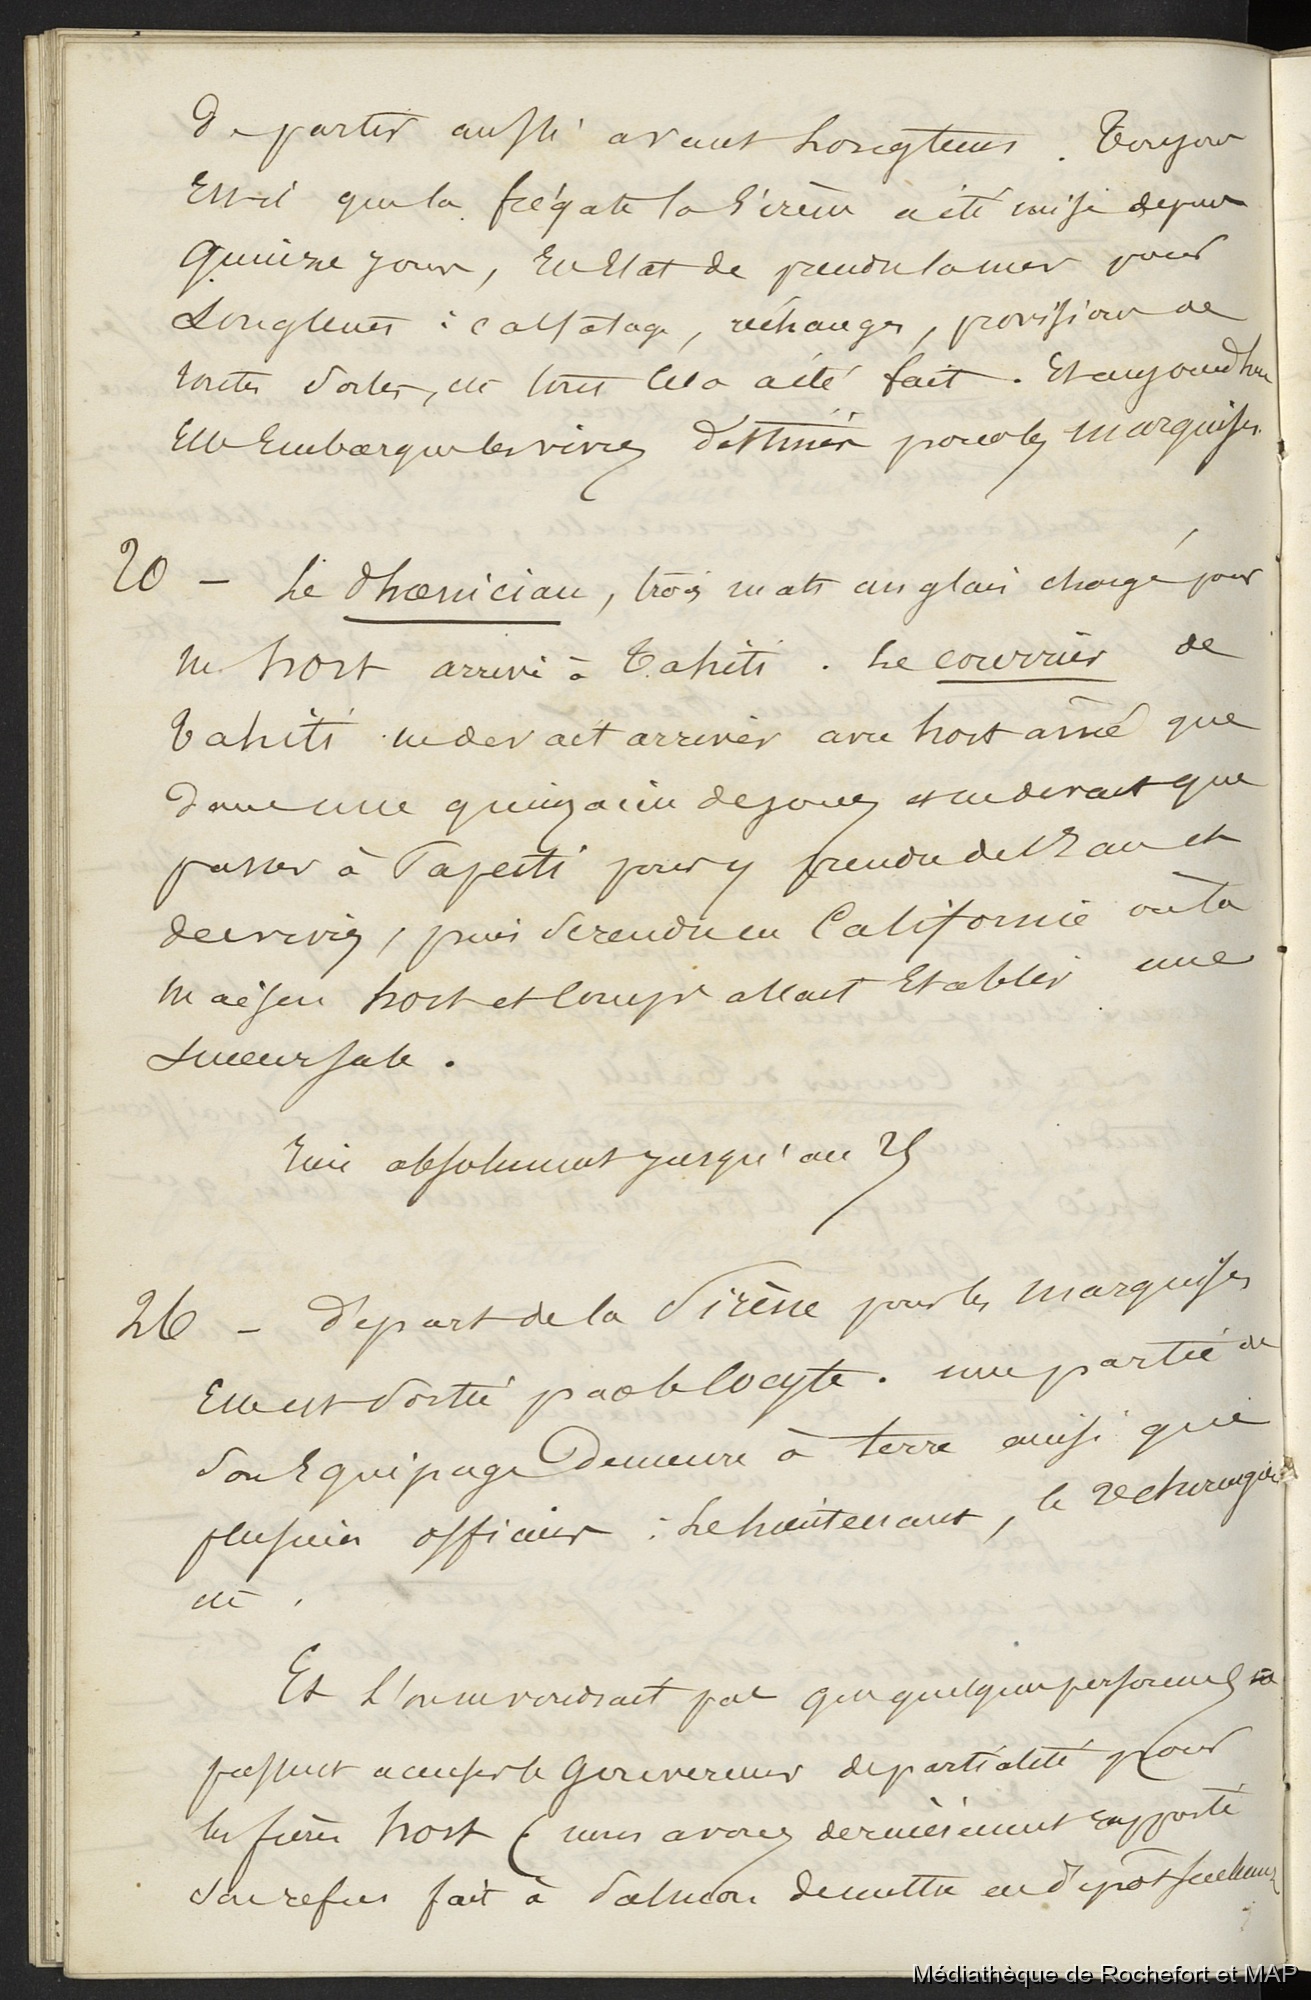 de partir aussi avant longtems. Toujours
est-il que la frégate la Sirène a été mise depuis
quinze jours, en Etat de prendre la mer pour
longtems : calfatage, réchanges, provisions de
toutes sortes, etc tout cela a été fait. Et aujourd'hui
Elle Embarque les vivres destinés pour les marquises.
20 - Le Phoenician, trois mats anglais chargé pour
Mr hort arrive à Tahiti. Le courrier de
Tahiti ne devait arriver avec hort ainé que
dans une quinzaine de jours et ne devait que
passer à Papeiti pour y prendre de l'Eau et
des vivres, puis se rendre en Californie où la
maison hort et Comp. allait Etablir une
succursale.
Rien absolument jusqu'au 25
26 - Départ de la Sirène pour les marquises
Elle est sortie par le Cocyte. une partie de
son Equipage Demeure à terre ainsi que
plusieurs officiers : Le lieutenant, le 2e chirurgien
etc.
Et l'on ne voudrait pas que quelques personnes
pussent accuser le Gouverneur de partialité pour
les frères hort (nous avons dernièrement rapporté
son refus fait à Salmon de mettre en dépôt
Médiathèque de Rochefort et MAP